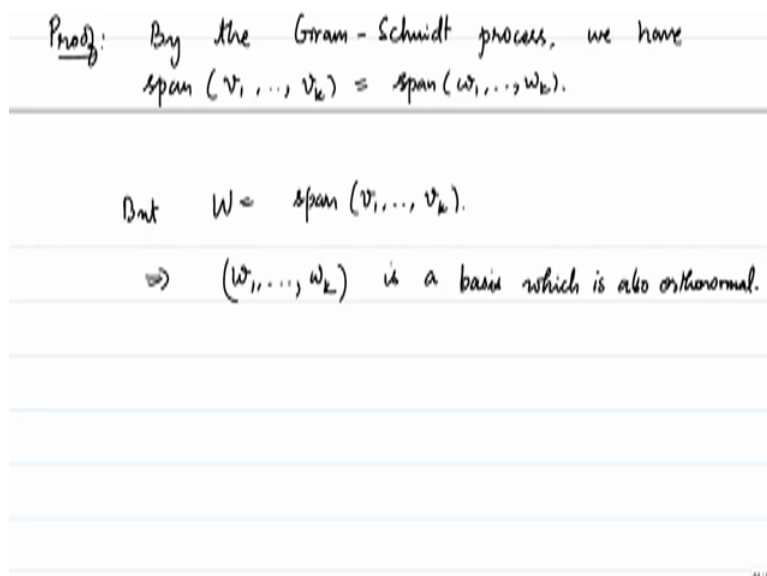 Proof: By the Gram-Schmidt process, we have
span (v₁, .., vₖ) = span (w₁, .., wₖ).
But W = span (v₁, .., vₖ).
⇒ (w₁, ..., wₖ) is a basis which is also orthonormal.